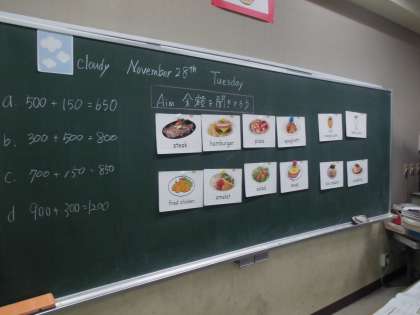 cloudy November 28th Tuesday
Aim 金額を聞きとろう
a. 500 + 150 = 650
b. 300 + 500 = 800
c. 700 + 150 = 850
d 900 + 300 = 1200
steak hamburger pizza spaghetti
fried chicken omelet salad